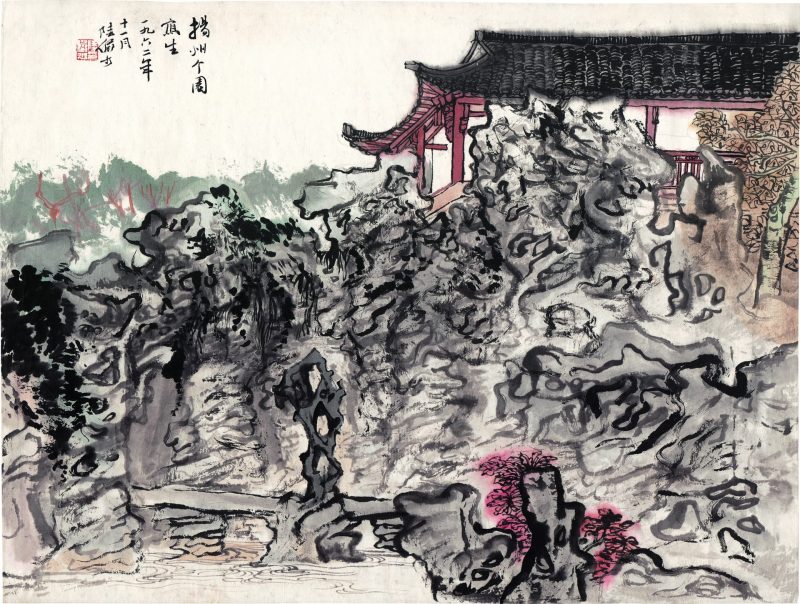 揚州个園
寫生
一九六二年
十一月
陸儼少